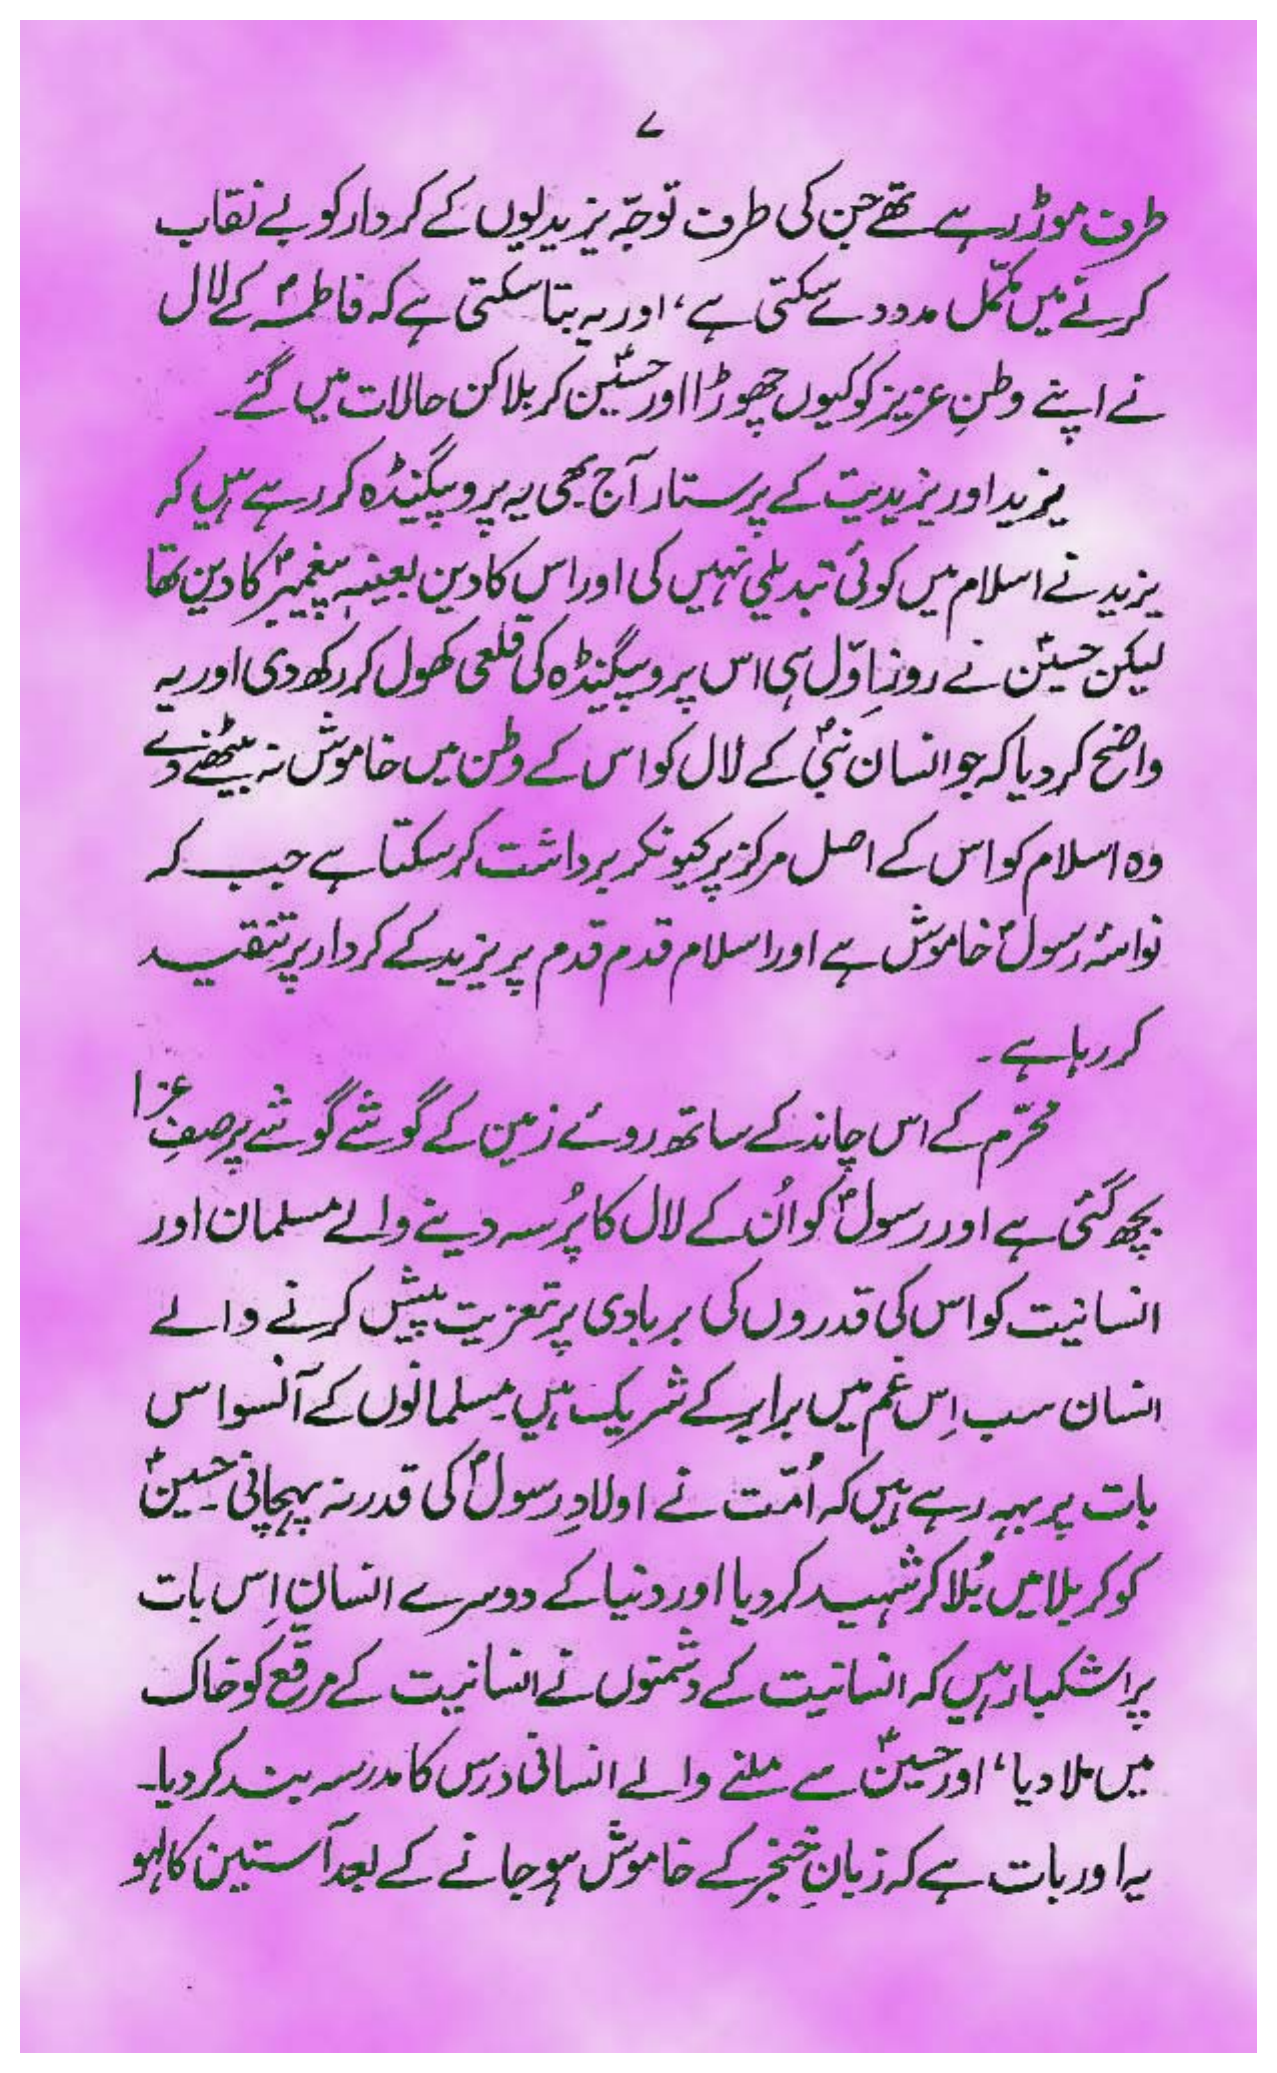 ۷
طرف موڑ رہے تھے جن کی طرف توجّہ یزیدیوں کے کردار کو بے نقاب
کرنے میں مکمّل مدد دے سکتی ہے، اور یہ بتا سکتی ہے کہ فاطمہؑ کے لال
نے اپنے وطنِ عزیز کو کیوں چھوڑا اور حسینؑ کربلا کن حالات میں گئے۔
یزید اور یزیدیت کے پرستار آج بھی یہ پروپیگنڈہ کر رہے ہیں کہ
یزید نے اسلام میں کوئی تبدیلی نہیں کی اور اس کا دین بعینہٖ پیغمبرؐ کا دین تھا
لیکن حسینؑ نے روزِ اوّل ہی اس پروپیگنڈہ کی قلعی کھول کر رکھ دی اور یہ
واضح کر دیا کہ جو انسان نبیؐ کے لال کو اس کے وطن میں خاموش نہ بیٹھنے دے
وہ اسلام کو اس کے اصل مرکز پر کیونکر برداشت کر سکتا ہے جب کہ
نواسۂ رسولؐ خاموش ہے اور اسلام قدم قدم پر یزید کے کردار پر تنقید
کر رہا ہے۔
محرّم کے اس چاند کے ساتھ روئے زمین کے گوشے گوشے پر صفِ عزا
بچھ گئی ہے اور رسولؐ کو اُن کے لال کا پُرسہ دینے والے مسلمان اور
انسانیت کو اس کی قدروں کی بربادی پر تعزیت پیش کرنے والے
انسان سب اِس غم میں برابر کے شریک ہیں مسلمانوں کے آنسو اس
بات پر بہہ رہے ہیں کہ اُمّت نے اولادِ رسولؐ کی قدر نہ پہچانی حسینؑ
کو کربلا میں بُلا کر شہید کر دیا اور دنیا کے دوسرے انسان اِس بات
پر اشکبار ہیں کہ انسانیت کے دشمنوں نے انسانیت کے مرقّع کو خاک
میں ملا دیا، اور حسینؑ سے ملنے والے انسانی درس کا مدرسہ بند کر دیا۔
یہ اور بات ہے کہ زبانِ خنجر کے خاموش ہو جانے کے بعد آستین کا لہو